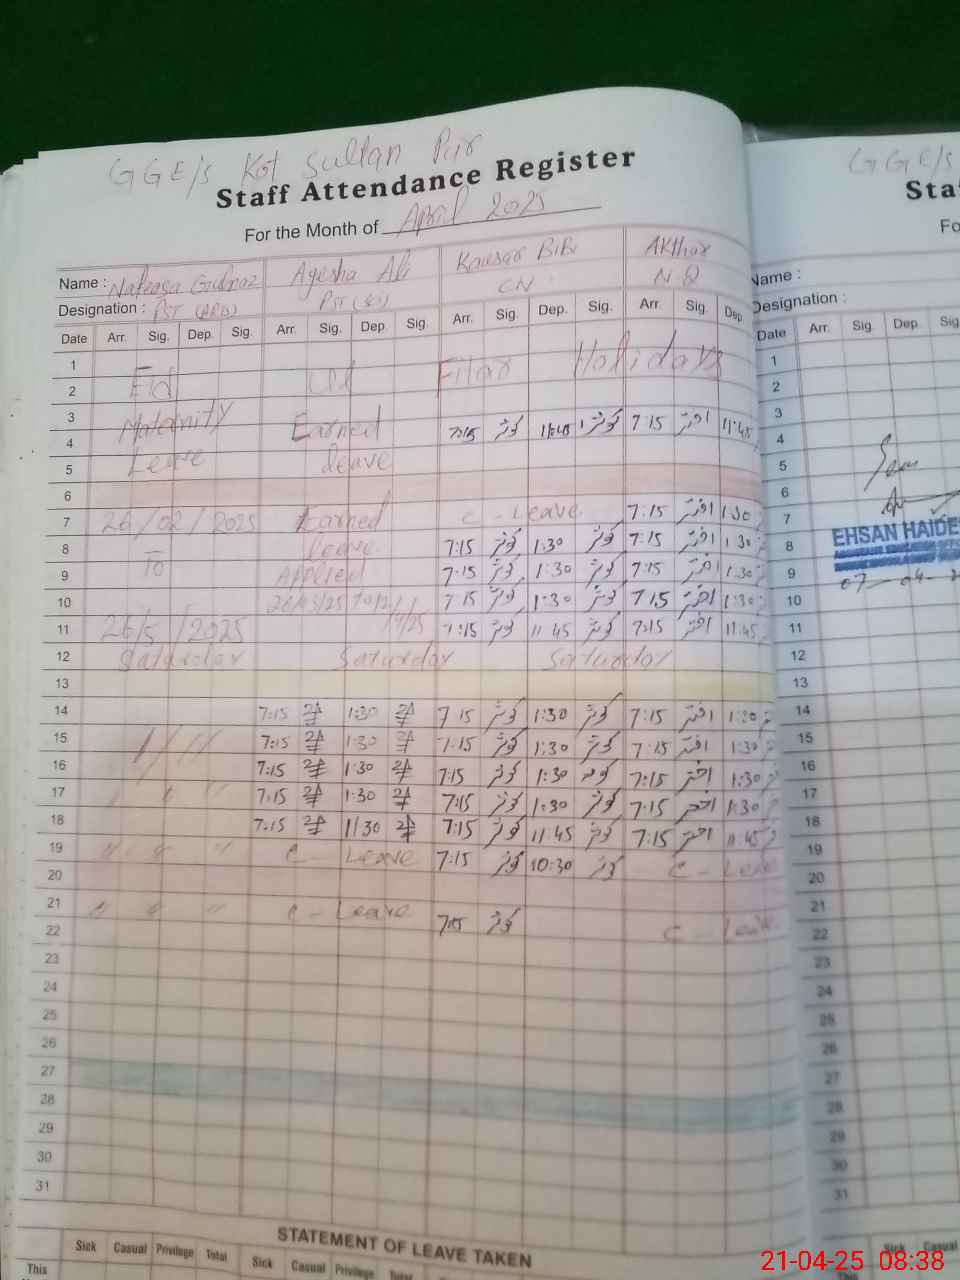 GGE/s Kot Sultan Pur
Staff Attendance Register
For the Month of April 2025
Name : Nafeesa Gulnaz Ayesha Ali Kausar BiBi AKthar
Designation : PST CN N.Q
Date Arr. Sig. Dep. Sig. Arr. Sig. Dep. Sig. Arr. Sig. Dep. Sig. Arr. Sig. Dep.
1
2 Eid Ul Fitar Holidays
3 Maternity
4 Earned 7:15 کوثر 11:45 کوثر 7:15 اختر 11:45
5 Leave Leave
6
7 26/02/2025 Earned C - Leave 7:15 اختر 1:30
8 Leave 7:15 کوثر 1:30 کوثر 7:15 اختر 1:30
9 To Applied 7:15 کوثر 1:30 کوثر 7:15 اختر 1:30
10 7:15 کوثر 1:30 کوثر 7:15 اختر 1:30
11 26/5/2025 7:15 کوثر 11:45 کوثر 7:15 اختر 11:45
12 Saturday Saturday Saturday
13
14 7:15 1:30 7:15 کوثر 1:30 کوثر 7:15 اختر 1:30
15 7:15 1:30 7:15 کوثر 1:30 کوثر 7:15 اختر 1:30
16 7:15 1:30 7:15 کوثر 1:30 کوثر 7:15 اختر 1:30
17 7:15 1:30 7:15 کوثر 1:30 کوثر 7:15 اختر 1:30
18 7:15 11:30 7:15 کوثر 11:45 کوثر 7:15 اختر 11:45
19 " " " C - Leave 7:15 کوثر 10:30 کوثر C - Leave
20
21 " " " C - Leave 7:15 کوثر C - Leave
22
23
24
25
26
27
28
29
30
31
STATEMENT OF LEAVE TAKEN
Sick Casual Privilege Total Sick Casual Privilege Total
This
GGE/s
Sta
Fo
Name :
Designation :
Date Arr. Sig. Dep. Sig
1
2
3
4
5
6
7
8 EHSAN HAIDE
9 07-04-2
10
11
12
13
14
15
16
17
18
19
20
21
22
23
24
25
26
27
28
29
30
31
Sick Casual
21-04-25 08:38